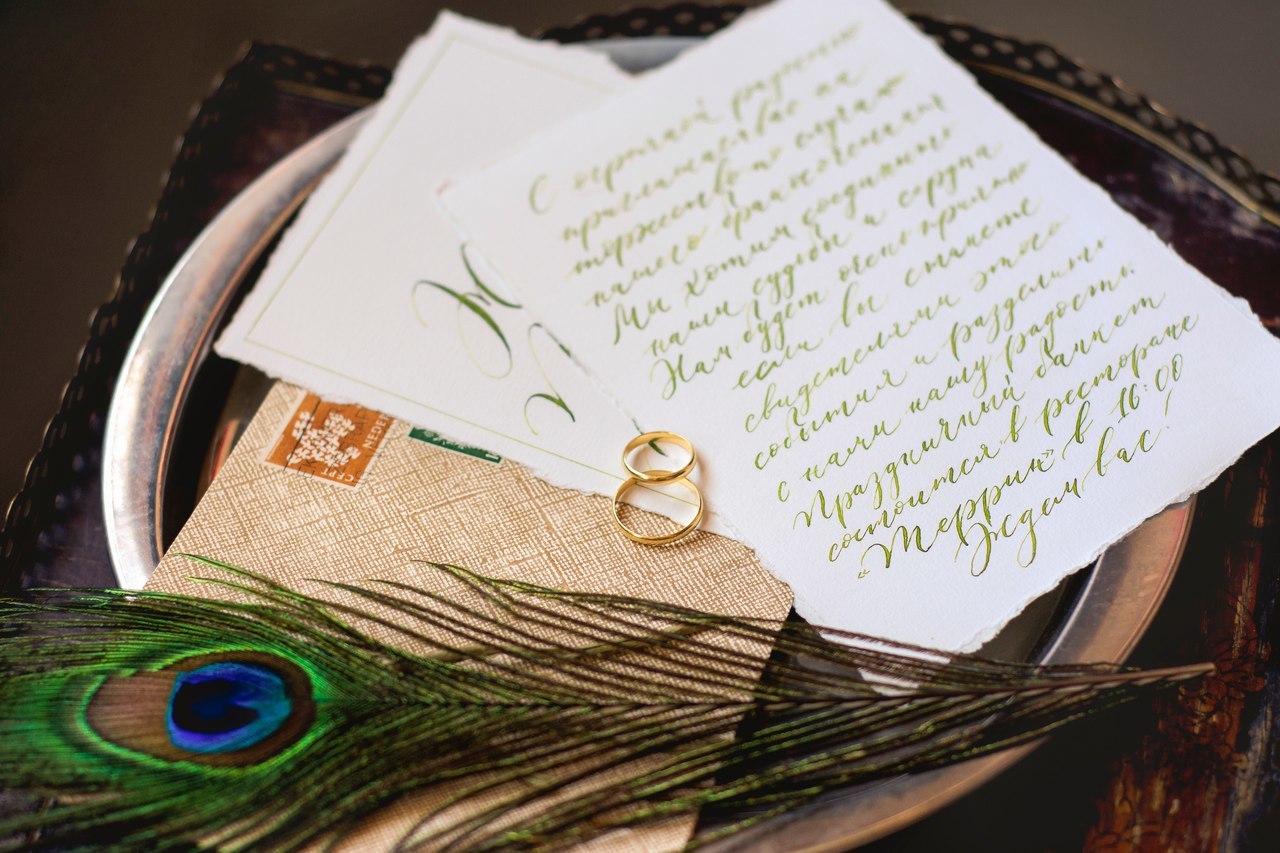 С огромной радостью
приглашаем вас на
торжество по случаю
нашего бракосочетания
Мы хотим соединить
наши судьбы и сердца
Нам будет очень приятно
если вы станете
свидетелями этого
события и разделите
с нами нашу радость.
Праздничный банкет
состоится в ресторане
„Террин" в 16:00
Ждем вас!
NEDER